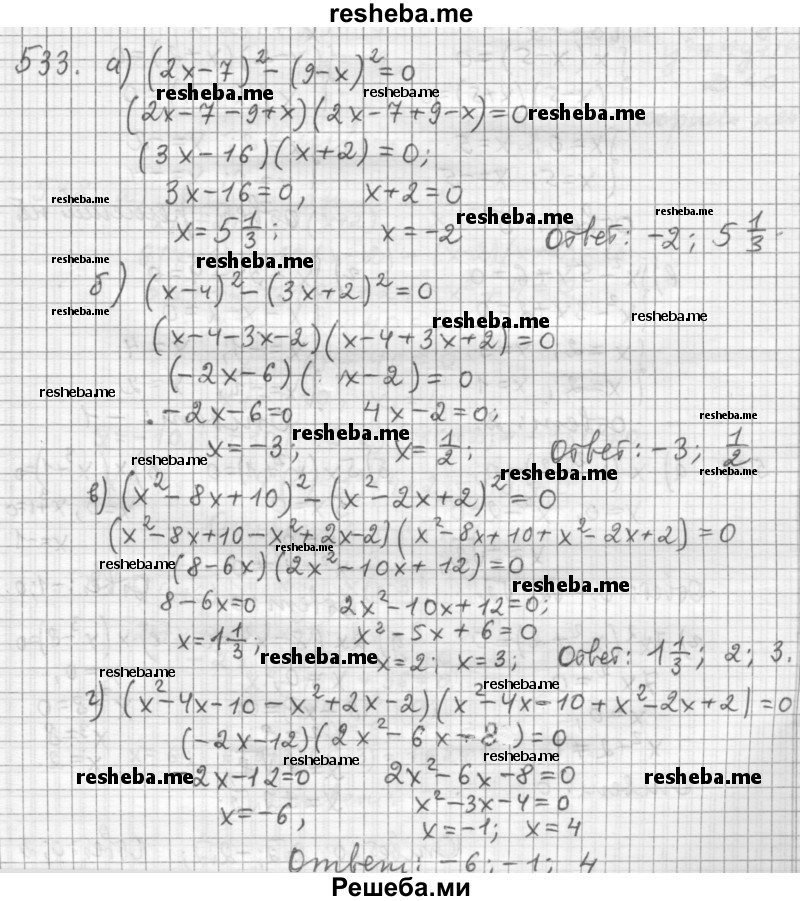 resheba.me
533. а) (2x-7)² - (9-x)² = 0
resheba.me resheba.me
(2x-7-9+x)(2x-7+9-x)=0 resheba.me
(3x-16)(x+2)=0;
resheba.me 3x-16=0, x+2=0
resheba.me resheba.me
x=5 1/3; x=-2 Ответ: -2; 5 1/3.
resheba.me resheba.me
б) (x-4)² - (3x+2)² = 0
resheba.me resheba.me resheba.me
(x-4-3x-2)(x-4+3x+2)=0
(-2x-6)( x-2)= 0
resheba.me
-2x-6=0 4x-2=0; resheba.me
resheba.me
x=-3; x=1/2; Ответ: -3; 1/2
resheba.me resheba.me resheba.me
в) (x²-8x+10)² - (x²-2x+2)² = 0
(x²-8x+10-x²+2x-2)(x²-8x+10+x²-2x+2)=0
resheba.me
resheba.me (8-6x)(2x²-10x+12)=0
resheba.me
8-6x=0 2x²-10x+12=0;
x=1 1/3; x²-5x+6=0
resheba.me x=2; x=3; Ответ: 1 1/3; 2; 3.
resheba.me resheba.me
г) (x²-4x-10-x²+2x-2)(x²-4x-10+x²-2x+2)=0
(-2x-12)(2x²-6x-8)=0
resheba.me resheba.me
resheba.me -2x-12=0 2x²-6x-8=0 resheba.me
x=-6, x²-3x-4=0
x=-1; x=4
Ответ: -6; -1; 4
Решеба.ми